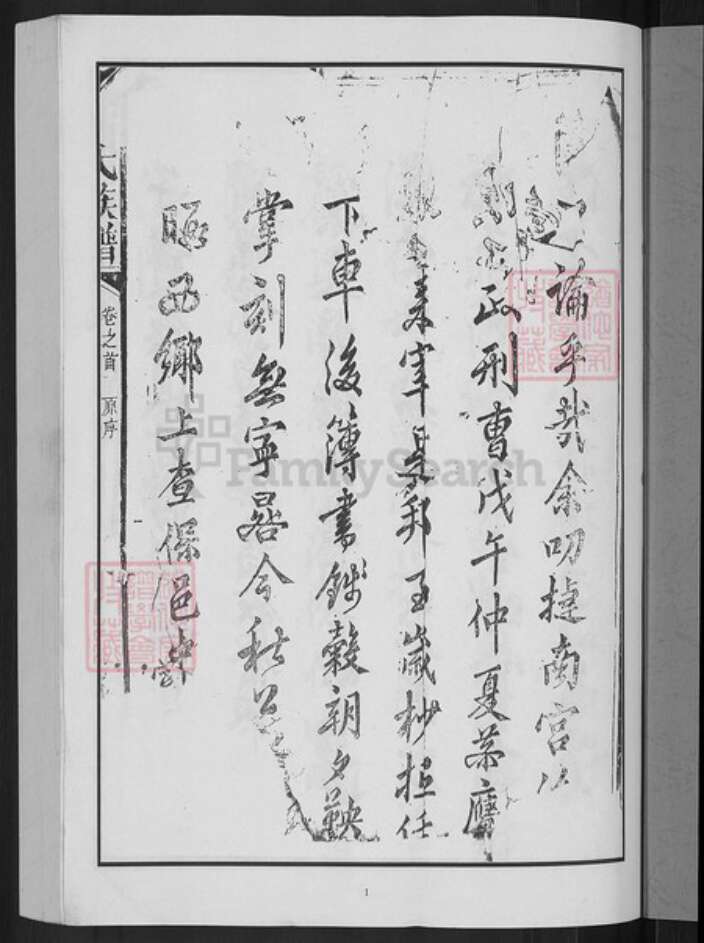 之論乎哉余叨捷南宮以
政刑曹戊午仲夏荼膺
来宰是邦至歲杪抵任
下車後簿書錢穀朝夕鞅
掌刻無寧晷今秋公
西鄉上查保邑
氏族譜
卷之首
原序
FamilySearch
1